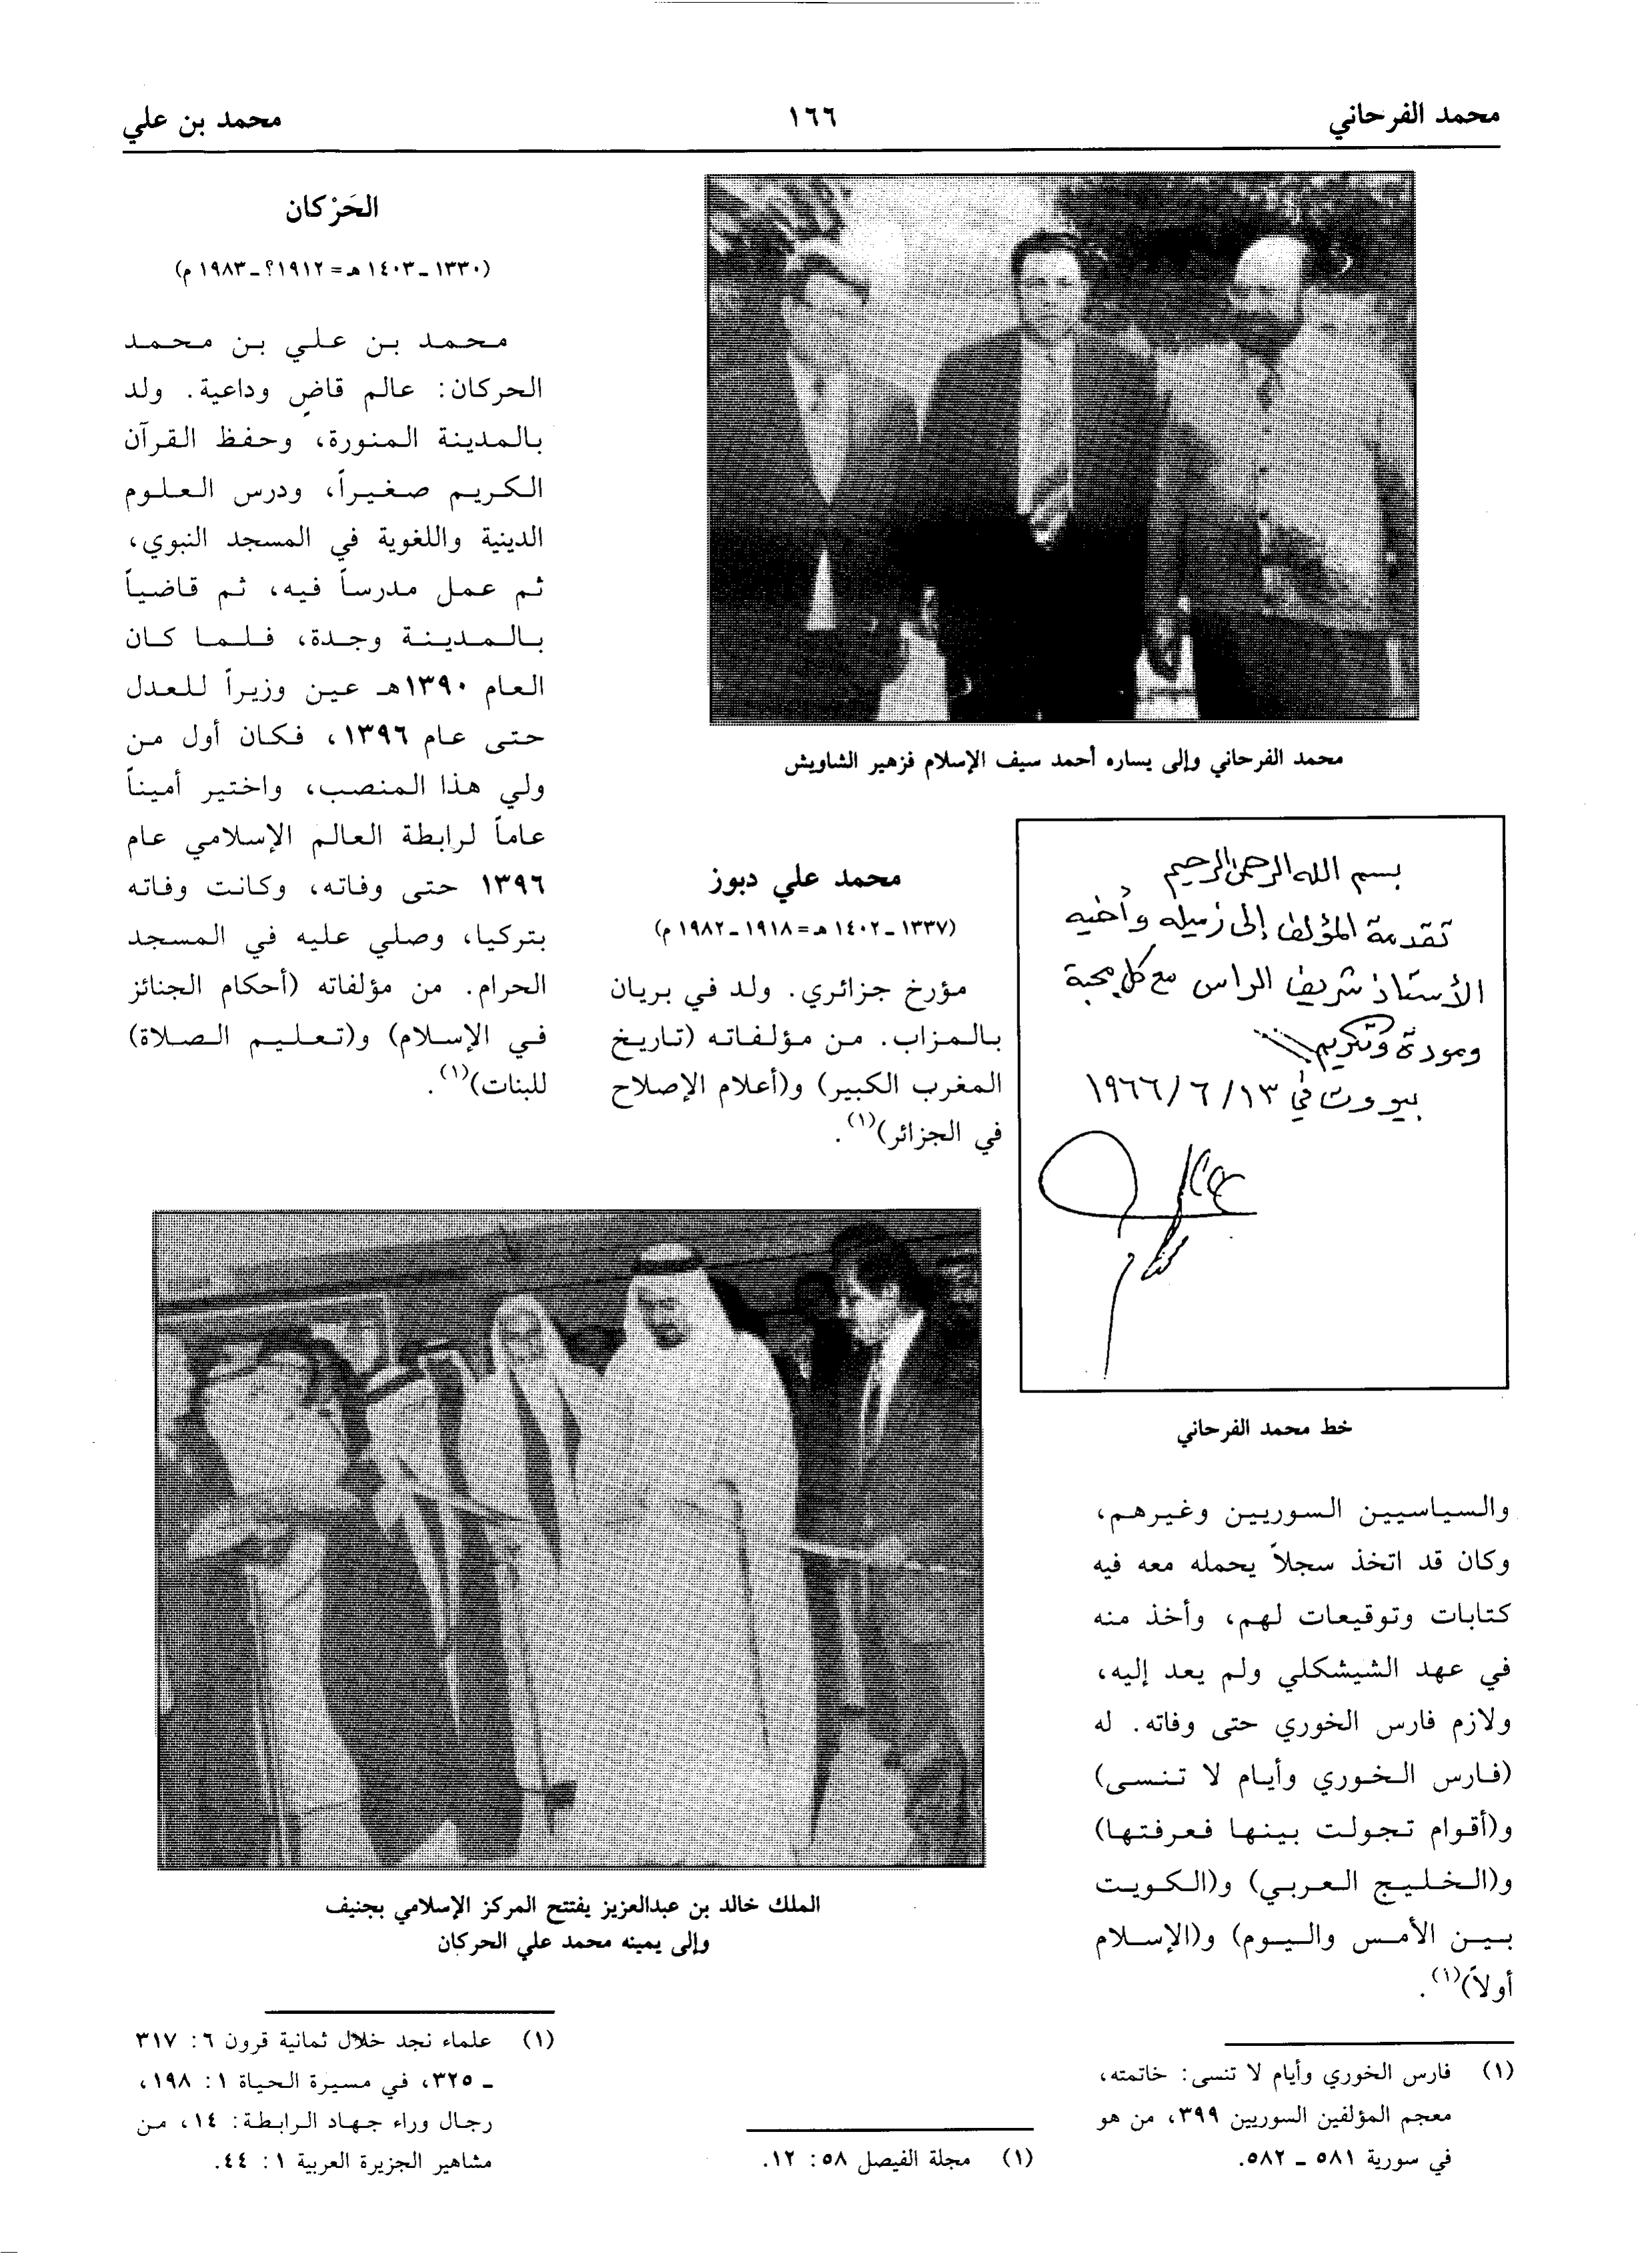 محمد الفرحاني
١٦٦
محمد بن علي
محمد الفرحاني وإلى يساره أحمد سيف الإسلام فزهير الشاويش
بسم الله الرحمن الرحيم
تقدمة المؤلف إلى زميله وأخيه
الأستاذ شريف الراس مع كل محبة
ومودة وتكريم
بيروت في ١٣/ ٦ /١٩٦٦
خط محمد الفرحاني
والسياسيين السوريين وغيرهم،
وكان قد اتخذ سجلاً يحمله معه فيه
كتابات وتوقيعات لهم، وأخذ منه
في عهد الشيشكلي ولم يعد إليه،
ولازم فارس الخوري حتى وفاته. له
(فارس الخوري وأيام لا تنسى)
و(أقوام تجولت بينها فعرفتها)
و(الخليج العربي) و(الكويت
بين الأمس واليوم) و(الإسلام
أولاً)(١).
(١) فارس الخوري وأيام لا تنسى: خاتمته،
معجم المؤلفين السوريين ٣٩٩، من هو
في سورية ٥٨١ ـ ٥٨٢.
محمد علي دبوز
(١٣٣٧ ـ ١٤٠٢ هـ = ١٩١٨ ـ ١٩٨٢ م)
مؤرخ جزائري. ولد في بريان
بالمزاب. من مؤلفاته (تاريخ
المغرب الكبير) و(أعلام الإصلاح
في الجزائر)(١).
(١) مجلة الفيصل ٥٨: ١٢.
الحَرْكان
(١٣٣٠ ـ ١٤٠٣ هـ = ١٩١٢؟ ـ ١٩٨٣ م)
محمد بن علي بن محمد
الحركان: عالم قاضٍ وداعية. ولد
بالمدينة المنورة، وحفظ القرآن
الكريم صغيراً، ودرس العلوم
الدينية واللغوية في المسجد النبوي،
ثم عمل مدرساً فيه، ثم قاضياً
بالمدينة وجدة، فلما كان
العام ١٣٩٠هـ عين وزيراً للعدل
حتى عام ١٣٩٦، فكان أول من
ولي هذا المنصب، واختير أميناً
عاماً لرابطة العالم الإسلامي عام
١٣٩٦ حتى وفاته، وكانت وفاته
بتركيا، وصلي عليه في المسجد
الحرام. من مؤلفاته (أحكام الجنائز
في الإسلام) و(تعليم الصلاة)
للبنات)(١).
الملك خالد بن عبدالعزيز يفتتح المركز الإسلامي بجنيف
وإلى يمينه محمد علي الحركان
(١) علماء نجد خلال ثمانية قرون ٦: ٣١٧
ـ ٣٢٥، في مسيرة الحياة ١: ١٩٨،
رجال وراء جهاد الرابطة: ١٤، من
مشاهير الجزيرة العربية ١: ٤٤.